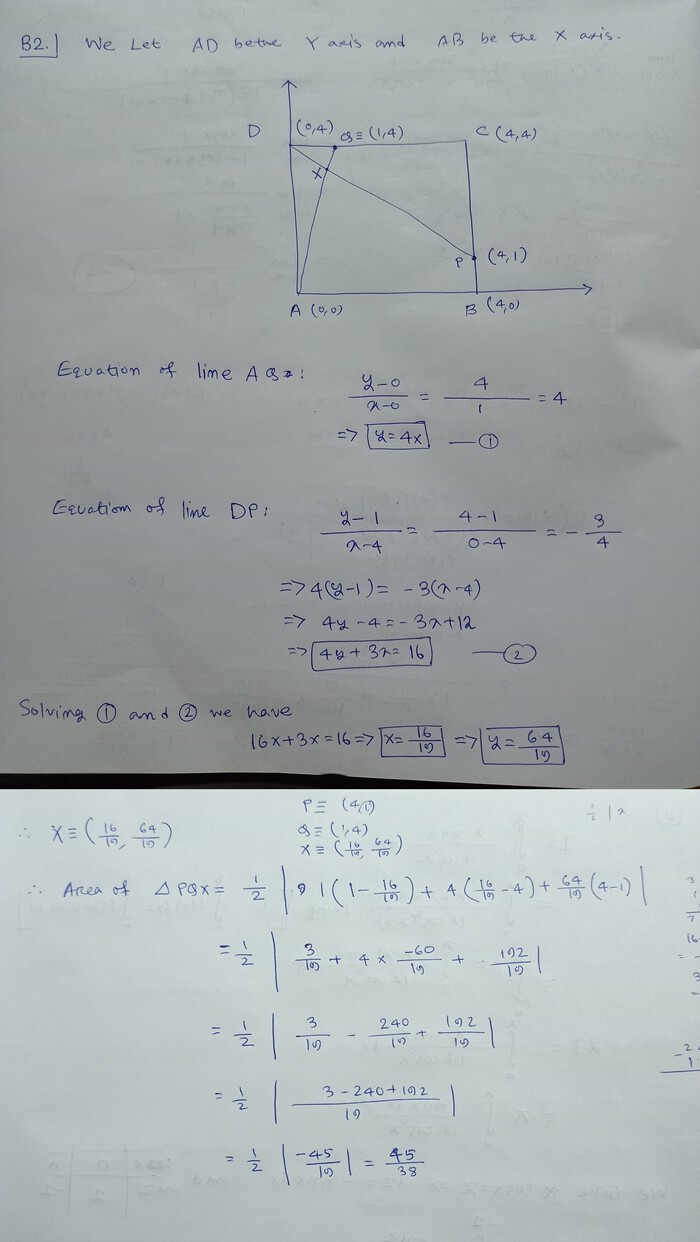 B2.] We Let AD bethe Y axis and AB be the X axis.
D (0,4) Q≡(1,4) C (4,4)
X
P (4,1)
A (0,0) B (4,0)
Equation of line AQ:
(y-0)/(x-0) = 4/1 = 4
=> y=4x —①
Equation of line DP:
(y-1)/(x-4) = (4-1)/(0-4) = -3/4
=> 4(y-1) = -3(x-4)
=> 4y-4=-3x+12
=> 4y+3x=16 —②
Solving ① and ② we have
16x+3x=16 => x=16/19 => y=64/19
P≡ (4,1)
Q≡(1,4)
∴ X≡(16/19, 64/19) X≡(16/19, 64/19)
∴ Area of △PQX= 1/2 |1(1-16/19)+4(16/19-4)+64/19(4-1)|
=1/2 |3/19+4×-60/19+192/19|
=1/2 |3/19-240/19+192/19|
=1/2 |(3-240+192)/19|
=1/2 |-45/19|=45/38